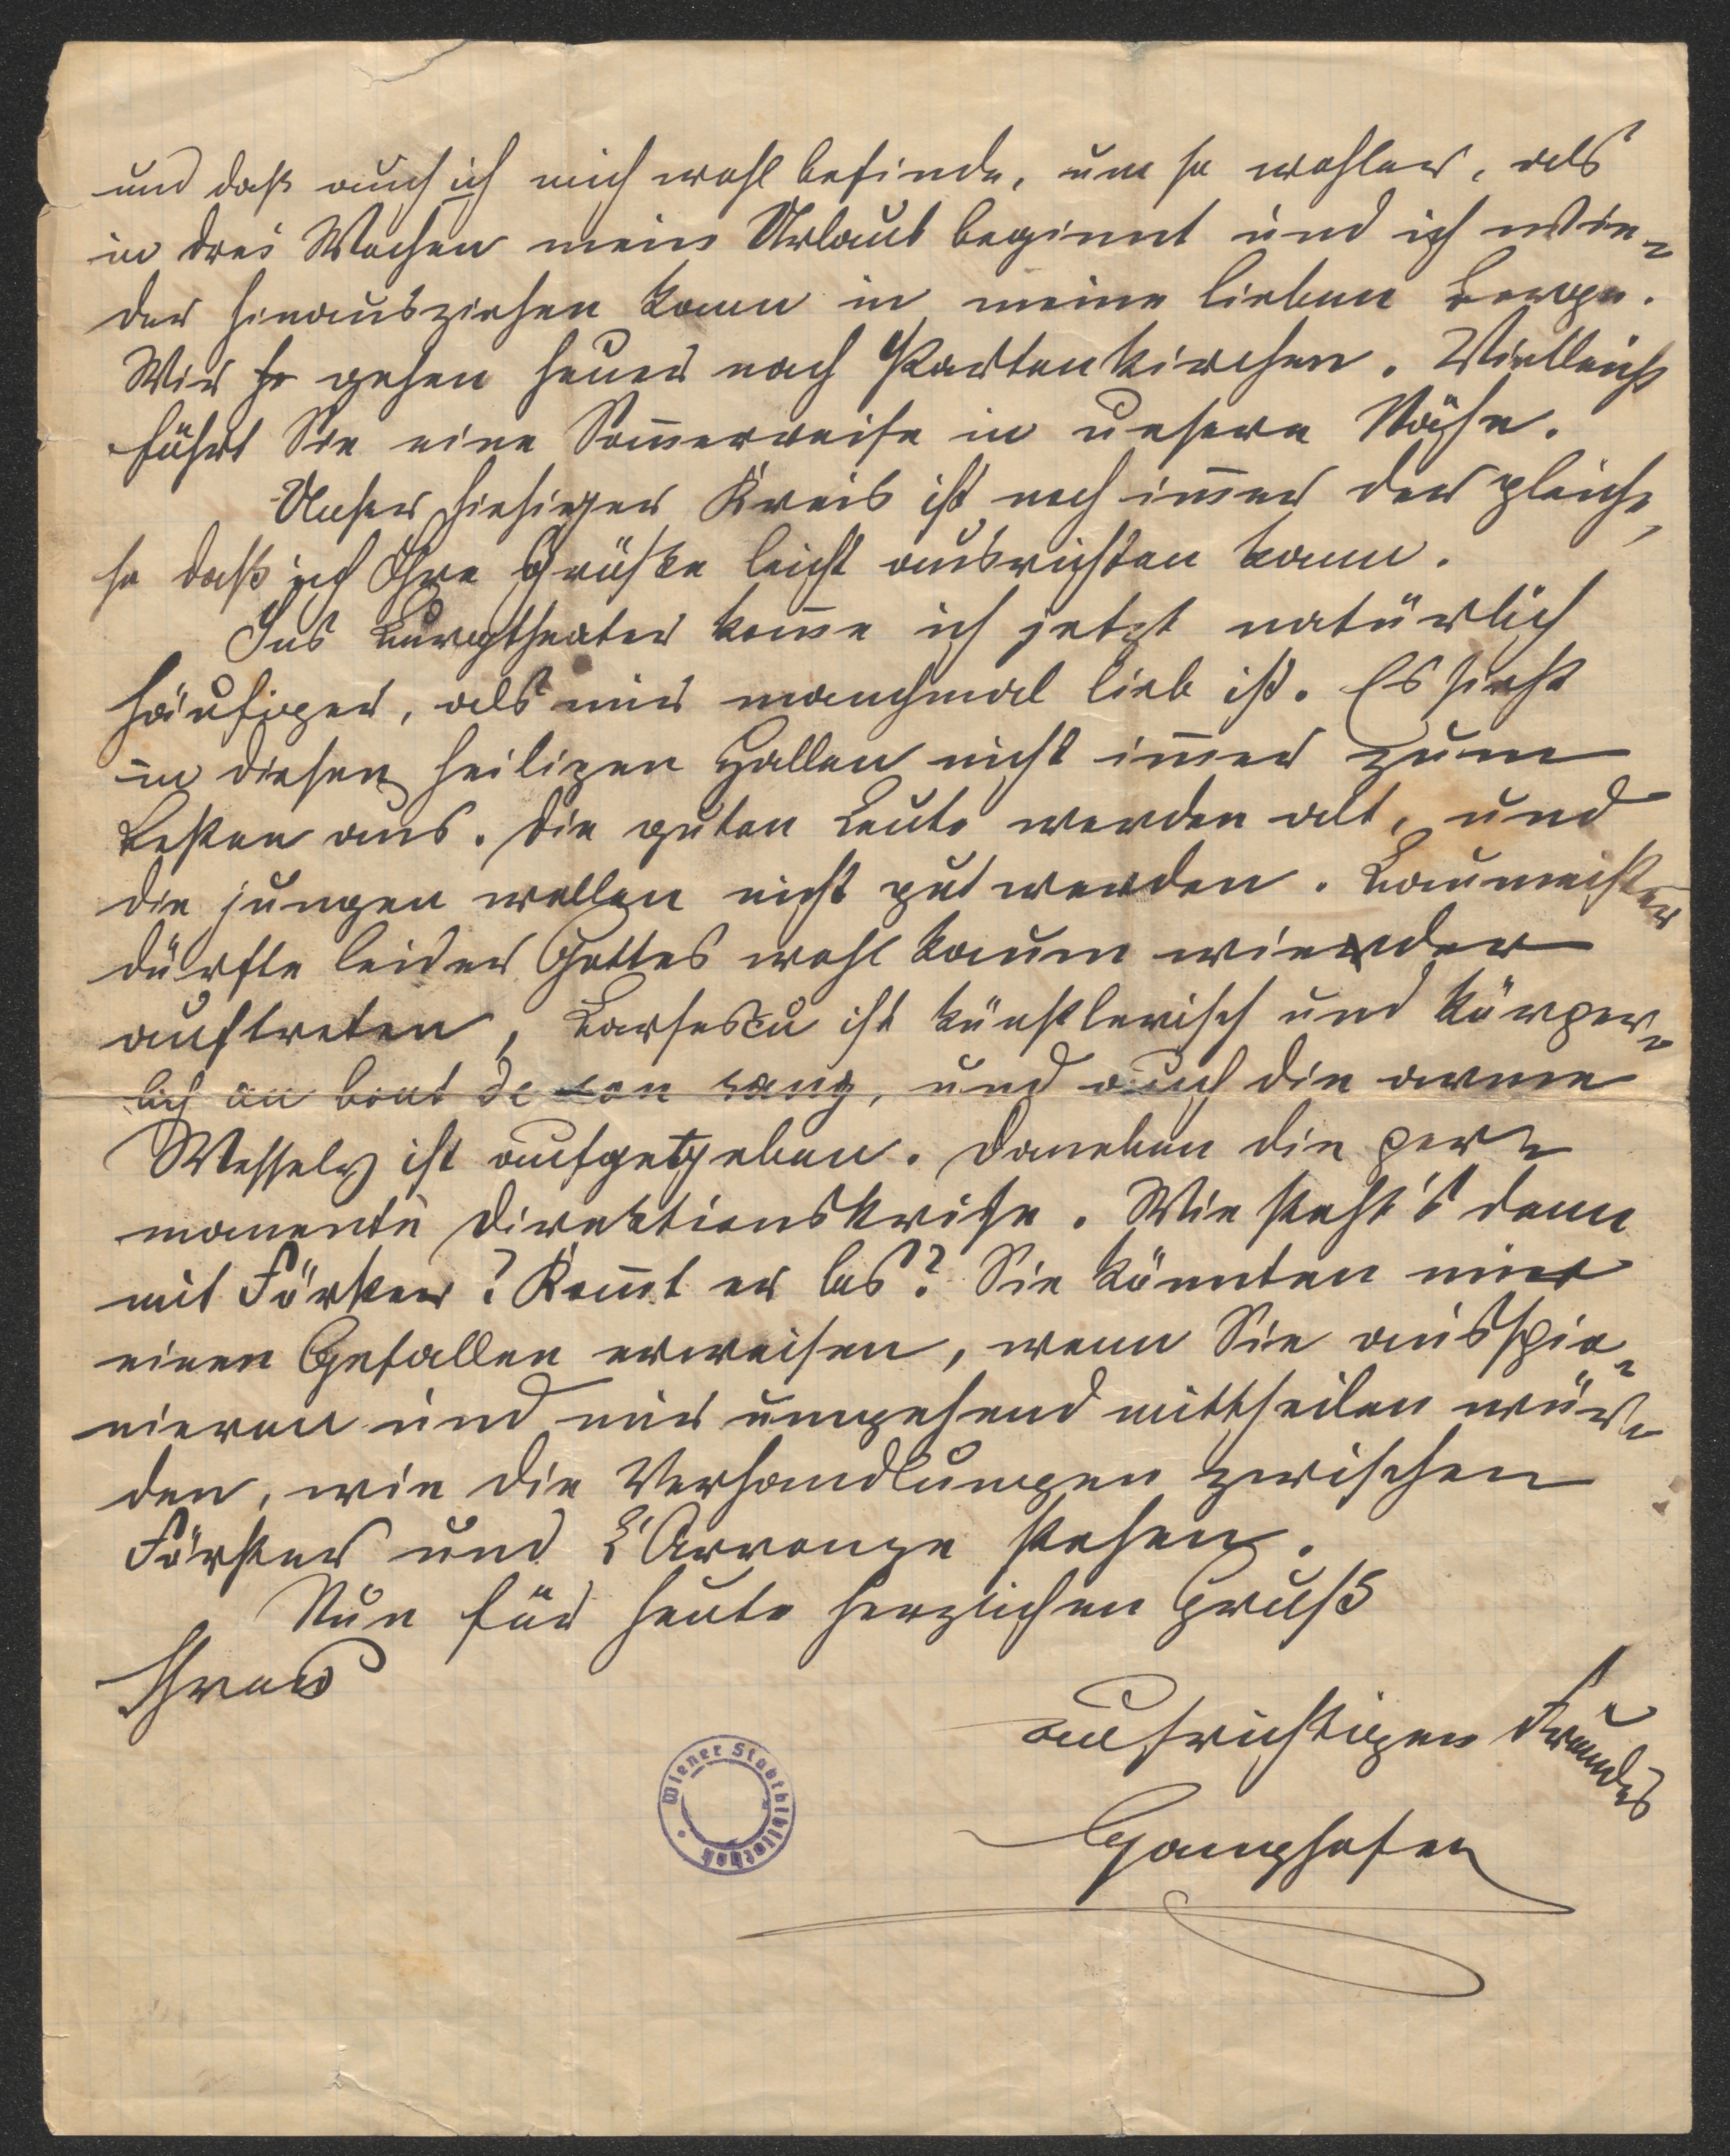 und daß auch ich mich wohl befinde, um so wohler, als
in drei Wochen mein Urlaub beginnt und ich wie-
der hinausziehen kann in meine lieben Berge.
Wir gehen heuer nach Partenkirchen. Vielleicht
führt Sie eine Som̄erreise in unsere Nähe.
Unser hiesiger Kreis ist noch im̄er der gleiche,
so daß ich Ihre Grüße leicht ausrichten kann.
Ins Burgtheater kom̄e ich jetzt natürlich
häufiger, als mir manchmal lieb ist. Es sieht
in diesen heiligen Hallen nicht im̄er zum
Besten aus. Die guten Leute werden alt, und
die jungen wollen nicht gut werden. Baumeister
dürfte leider Gottes wohl kaum wieder
auftreten, Barsescu ist künstlerisch und körper-
lich au bout de son rang, und auch die arme
Wessely ist aufgegeben. Daneben die per-
manente Direktionskrise. Wie steht's denn
mit Förster? Kom̄t er los? Sie könnten mir
einen Gefallen erweisen, wenn Sie ausspio-
nieren und mir umgehend mittheilen wür-
den, wie die Verhandlungen zwischen
Förster und L'Arronge stehen.
Nun für heute herzlichen Gruß
Ihres
aufrichtigen Freundes
Ganghofer
Wiener Stadtbibliothek